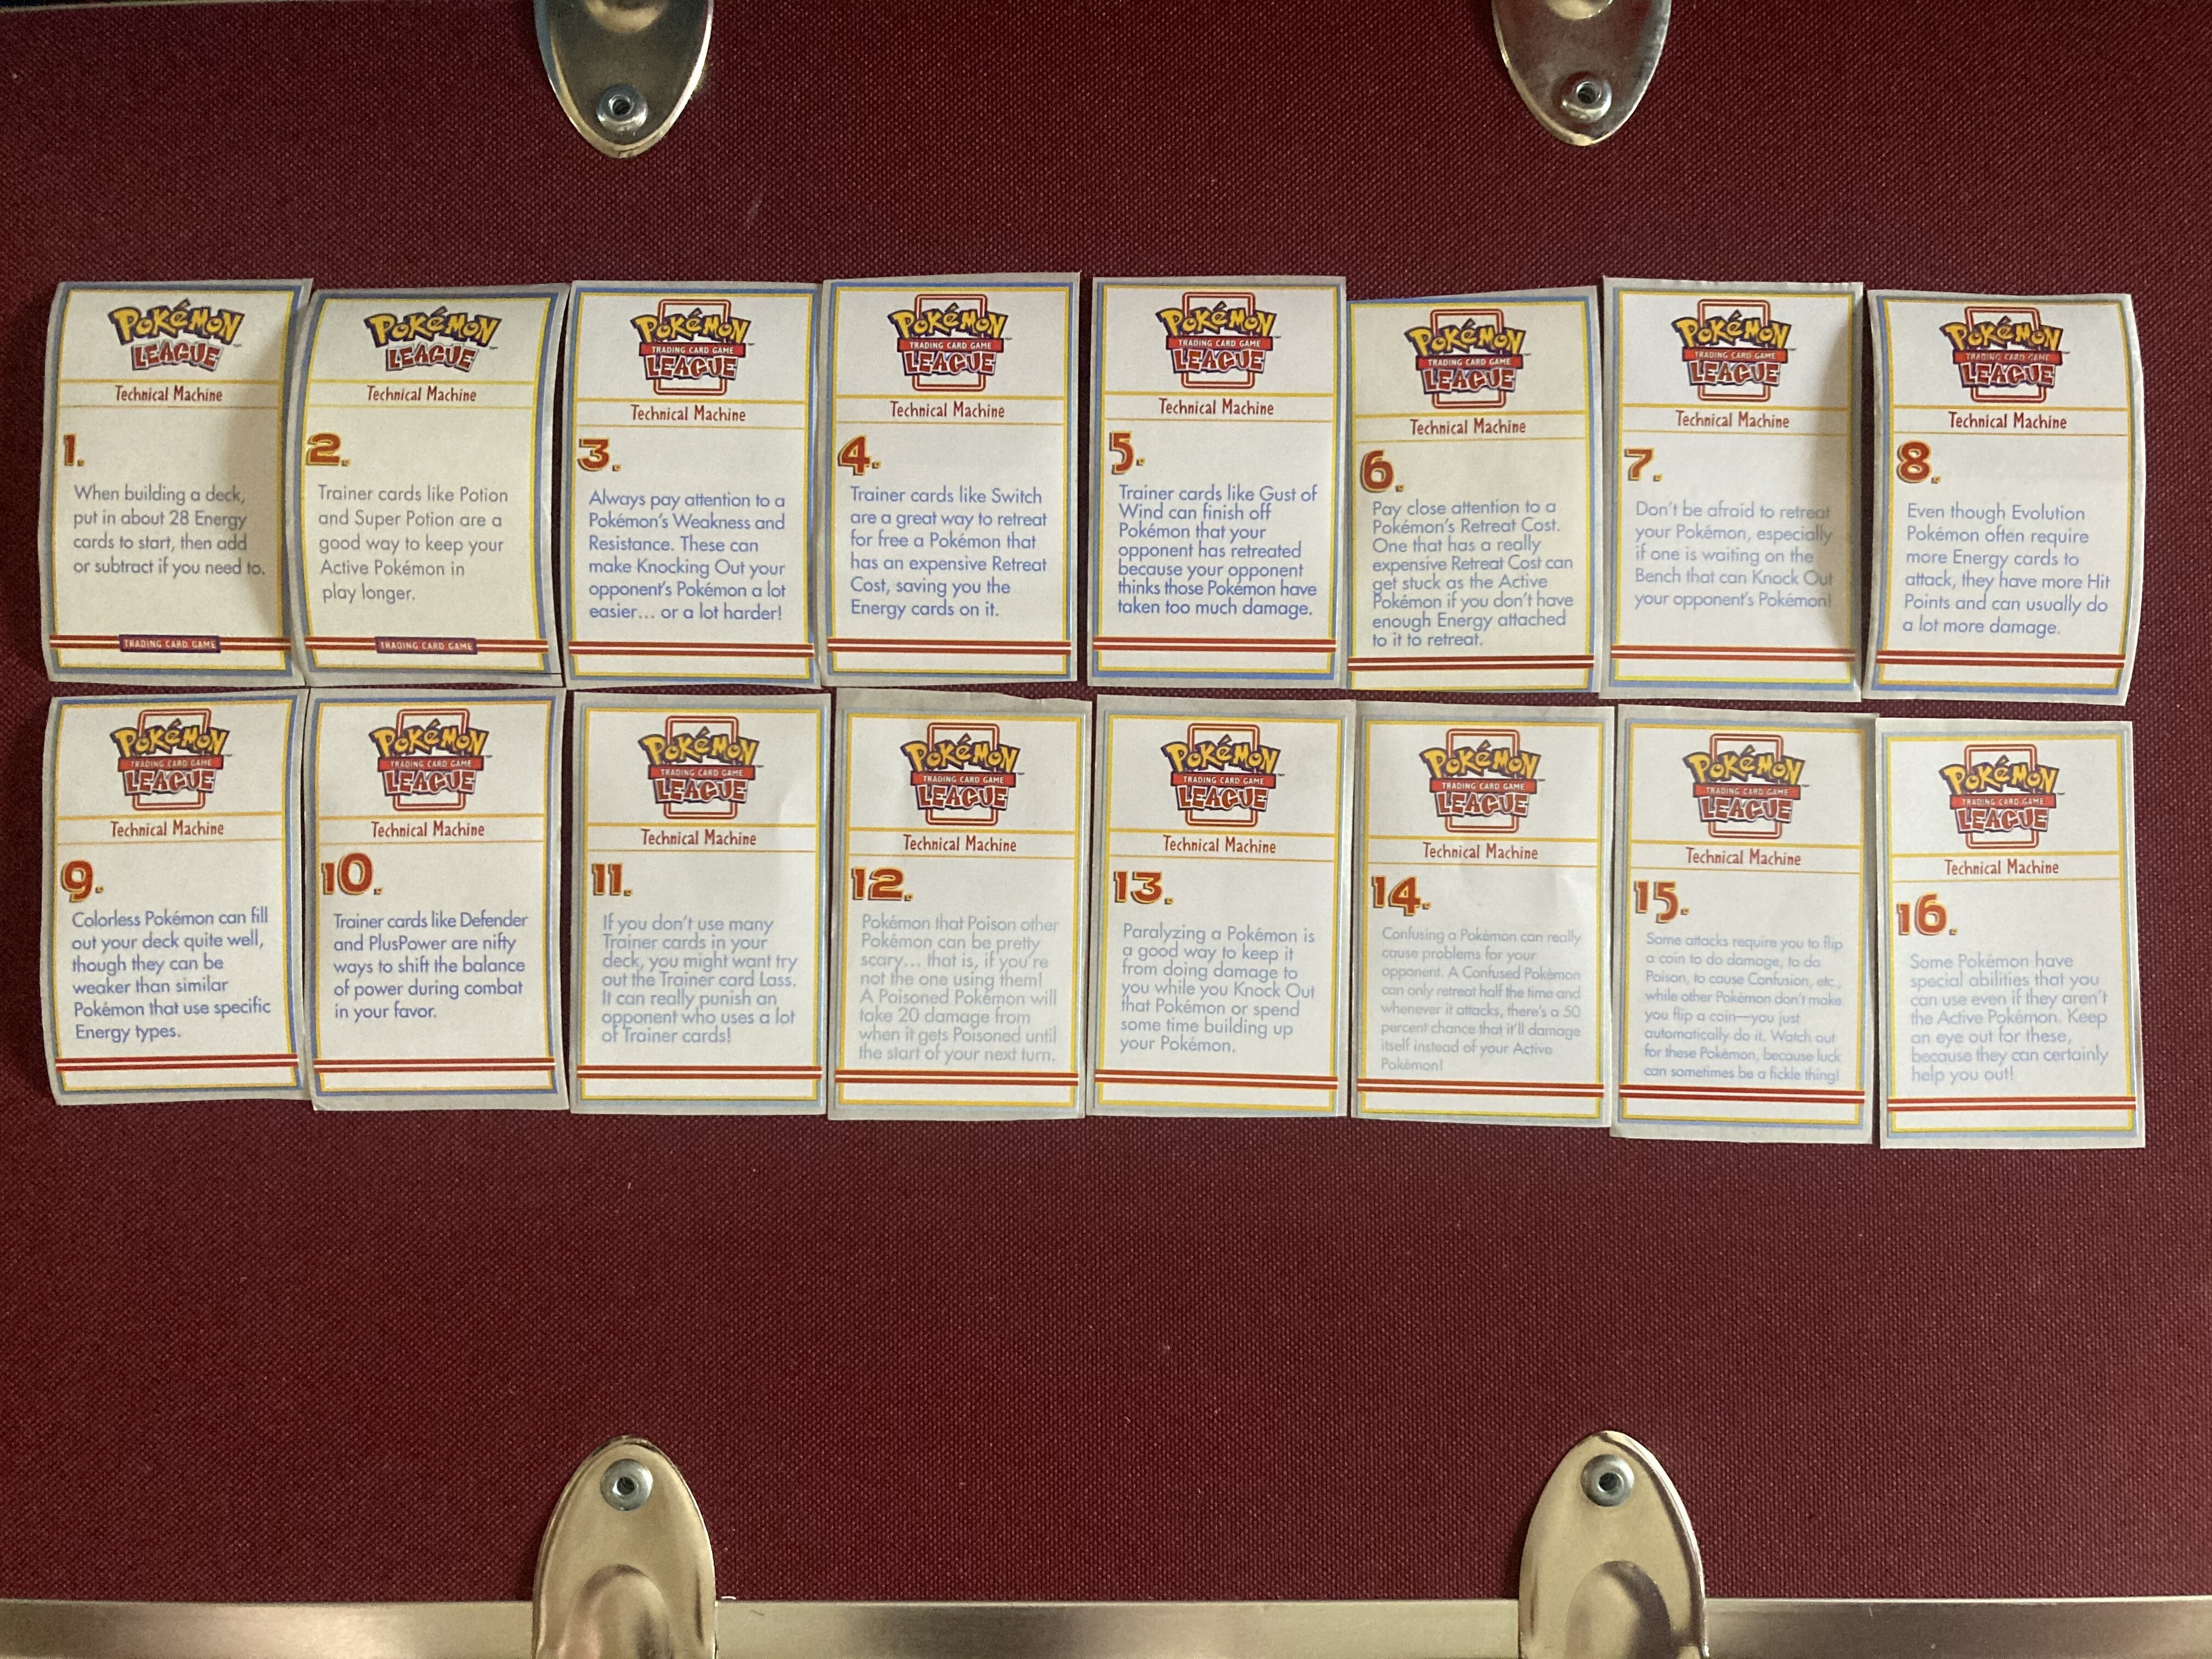 POKéMON
LEAGUE
Technical Machine
1.
When building a deck,
put in about 28 Energy
cards to start, then add
or subtract if you need to.
TRADING CARD GAME
POKéMON
LEAGUE
Technical Machine
2.
Trainer cards like Potion
and Super Potion are a
good way to keep your
Active Pokémon in
play longer.
TRADING CARD GAME
POKéMON
TRADING CARD GAME
LEAGUE
Technical Machine
3.
Always pay attention to a
Pokémon's Weakness and
Resistance. These can
make Knocking Out your
opponent's Pokémon a lot
easier... or a lot harder!
POKéMON
TRADING CARD GAME
LEAGUE
Technical Machine
4.
Trainer cards like Switch
are a great way to retreat
for free a Pokémon that
has an expensive Retreat
Cost, saving you the
Energy cards on it.
POKéMON
TRADING CARD GAME
LEAGUE
Technical Machine
5.
Trainer cards like Gust of
Wind can finish off
Pokémon that your
opponent has retreated
because your opponent
thinks those Pokémon have
taken too much damage.
POKéMON
TRADING CARD GAME
LEAGUE
Technical Machine
6.
Pay close attention to a
Pokémon's Retreat Cost.
One that has a really
expensive Retreat Cost can
get stuck as the Active
Pokémon if you don't have
enough Energy attached
to it to retreat.
POKéMON
TRADING CARD GAME
LEAGUE
Technical Machine
7.
Don't be afraid to retreat
your Pokémon, especially
if one is waiting on the
Bench that can Knock Out
your opponent's Pokémon!
POKéMON
TRADING CARD GAME
LEAGUE
Technical Machine
8.
Even though Evolution
Pokémon often require
more Energy cards to
attack, they have more Hit
Points and can usually do
a lot more damage.
POKéMON
TRADING CARD GAME
LEAGUE
Technical Machine
9.
Colorless Pokémon can fill
out your deck quite well,
though they can be
weaker than similar
Pokémon that use specific
Energy types.
POKéMON
TRADING CARD GAME
LEAGUE
Technical Machine
10.
Trainer cards like Defender
and PlusPower are nifty
ways to shift the balance
of power during combat
in your favor.
POKéMON
TRADING CARD GAME
LEAGUE
Technical Machine
11.
If you don't use many
Trainer cards in your
deck, you might want try
out the Trainer card Lass.
It can really punish an
opponent who uses a lot
of Trainer cards!
POKéMON
TRADING CARD GAME
LEAGUE
Technical Machine
12.
Pokémon that Poison other
Pokémon can be pretty
scary... that is, if you're
not the one using them!
A Poisoned Pokémon will
take 20 damage from
when it gets Poisoned until
the start of your next turn.
POKéMON
TRADING CARD GAME
LEAGUE
Technical Machine
13.
Paralyzing a Pokémon is
a good way to keep it
from doing damage to
you while you Knock Out
that Pokémon or spend
some time building up
your Pokémon.
POKéMON
TRADING CARD GAME
LEAGUE
Technical Machine
14.
Confusing a Pokémon can really
cause problems for your
opponent. A Confused Pokémon
can only retreat half the time and
whenever it attacks, there's a 50
percent chance that it'll damage
itself instead of your Active
Pokémon!
POKéMON
TRADING CARD GAME
LEAGUE
Technical Machine
15.
Some attacks require you to flip
a coin to do damage, to do
Poison, to cause Confusion, etc.,
while other Pokémon don't make
you flip a coin—you just
automatically do it. Watch out
for these Pokémon, because luck
can sometimes be a fickle thing!
POKéMON
TRADING CARD GAME
LEAGUE
Technical Machine
16.
Some Pokémon have
special abilities that you
can use even if they aren't
the Active Pokémon. Keep
an eye out for these,
because they can certainly
help you out!